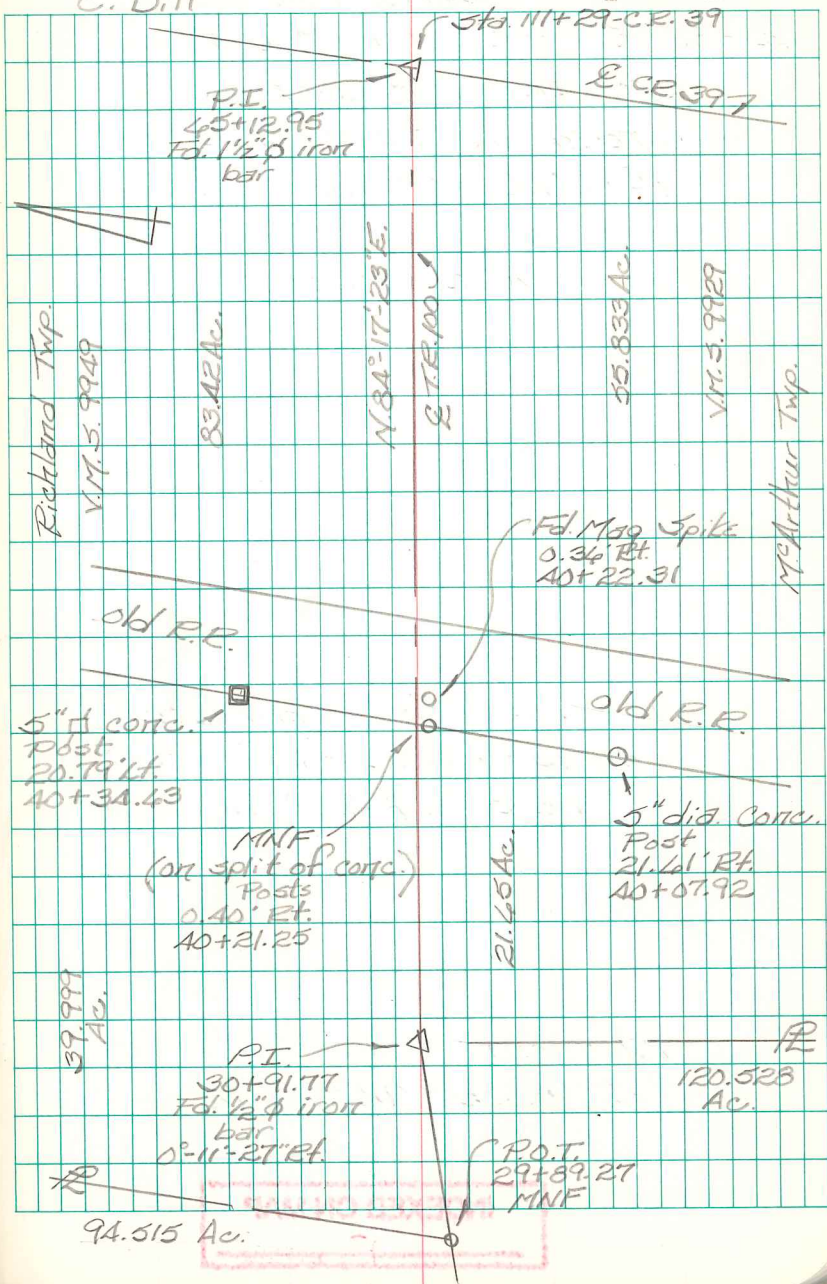 Sta. 111+29-C.R. 39
℄ C.R. 39
P.I.
65+12.95
Fd. 1½"ϕ iron
bar
Richland Twp.
V.M.S. 9949
83.42 Ac.
N.84°-17'-23"E.
℄ T.R. 100
55.833 Ac.
V.M.S. 9929
McArthur Twp.
Fd. Mag Spike
0.36' Rt.
40+22.31
old R.R.
old R.R.
5"□ conc.
Post
20.79' Lt.
40+34.63
MNF
(on split of conc.)
Posts
0.40' Rt.
40+21.25
5" dia. conc.
Post
21.61' Rt.
40+07.92
21.65 Ac.
39.999
Ac.
P.I.
30+91.77
Fd. ½"ϕ iron
bar
0°-11'-27" Rt.
℄
120.528
Ac.
P.O.T.
29+89.27
MNF
94.515 Ac.